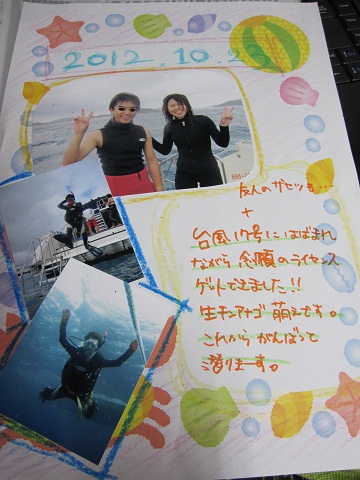 2012.10.23
友人のザセツも・・
+
台風17号にはばまれ
ながら 念願のライセンス
ゲットできました!!
生チンアナゴ 萌えです。
これから がんばって
潜りまーす。